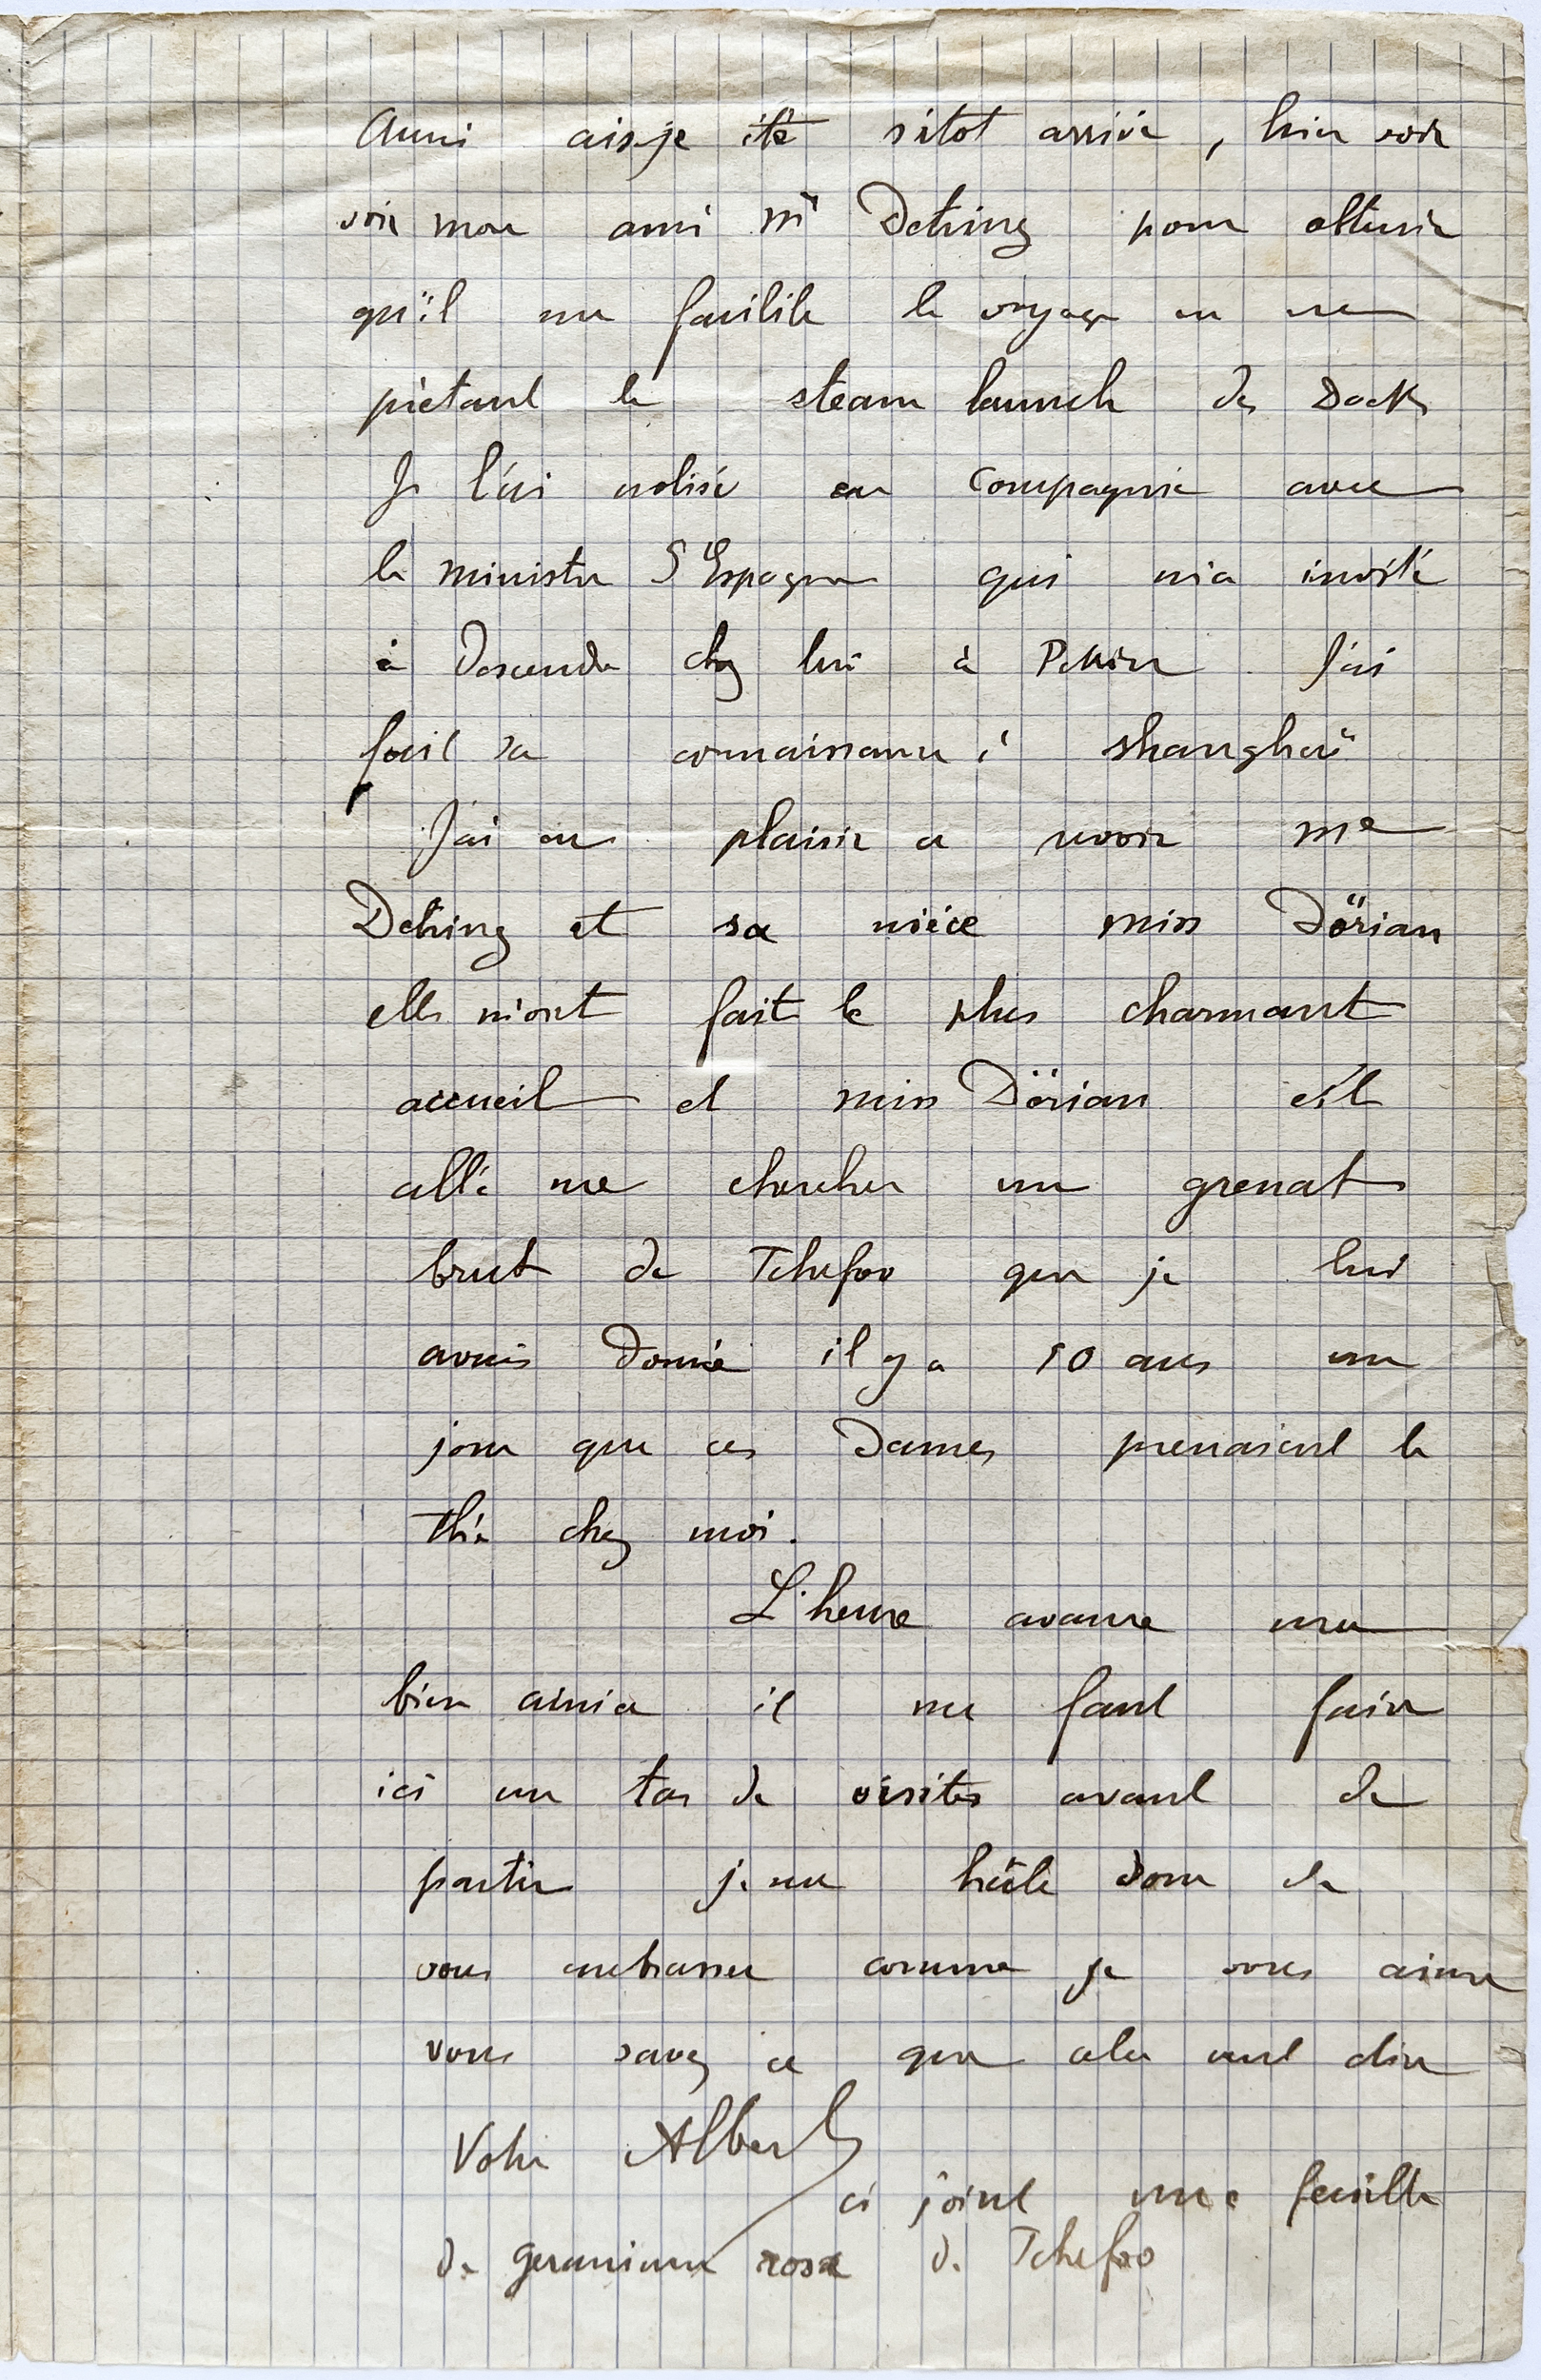 Aussi ais-je été sitot arrivé, hier soir
voir mon ami Mr Detring pour obtenir
qu'il me facilite le voyage en me
prêtant le steam launch des Docks
Je l'ai utilisé en compagnie avec
le ministre d'Espagne qui m'a invité
à descendre chez lui à Pekin J'ai
fait sa connaissance à Shanghaï
J'ai eu plaisir a revoir Me
Detring et sa nièce miss Dörian
elles m'ont fait le plus charmant
accueil et miss Dörian est
allé me chercher un grenat
brut de Tchefoo que je lui
avais donné il y a 10 ans un
jour que ces dames prenaient le
thé chez moi.
L'heure avance ma
bien aimée il me faut faire
ici un tas de visites avant de
partir je me hâte donc de
vous embrasser comme je vous aime
vous savez ce que cela veut dire
Votre Albert
ci joint une feuille
de geranium rosa de Tchefoo